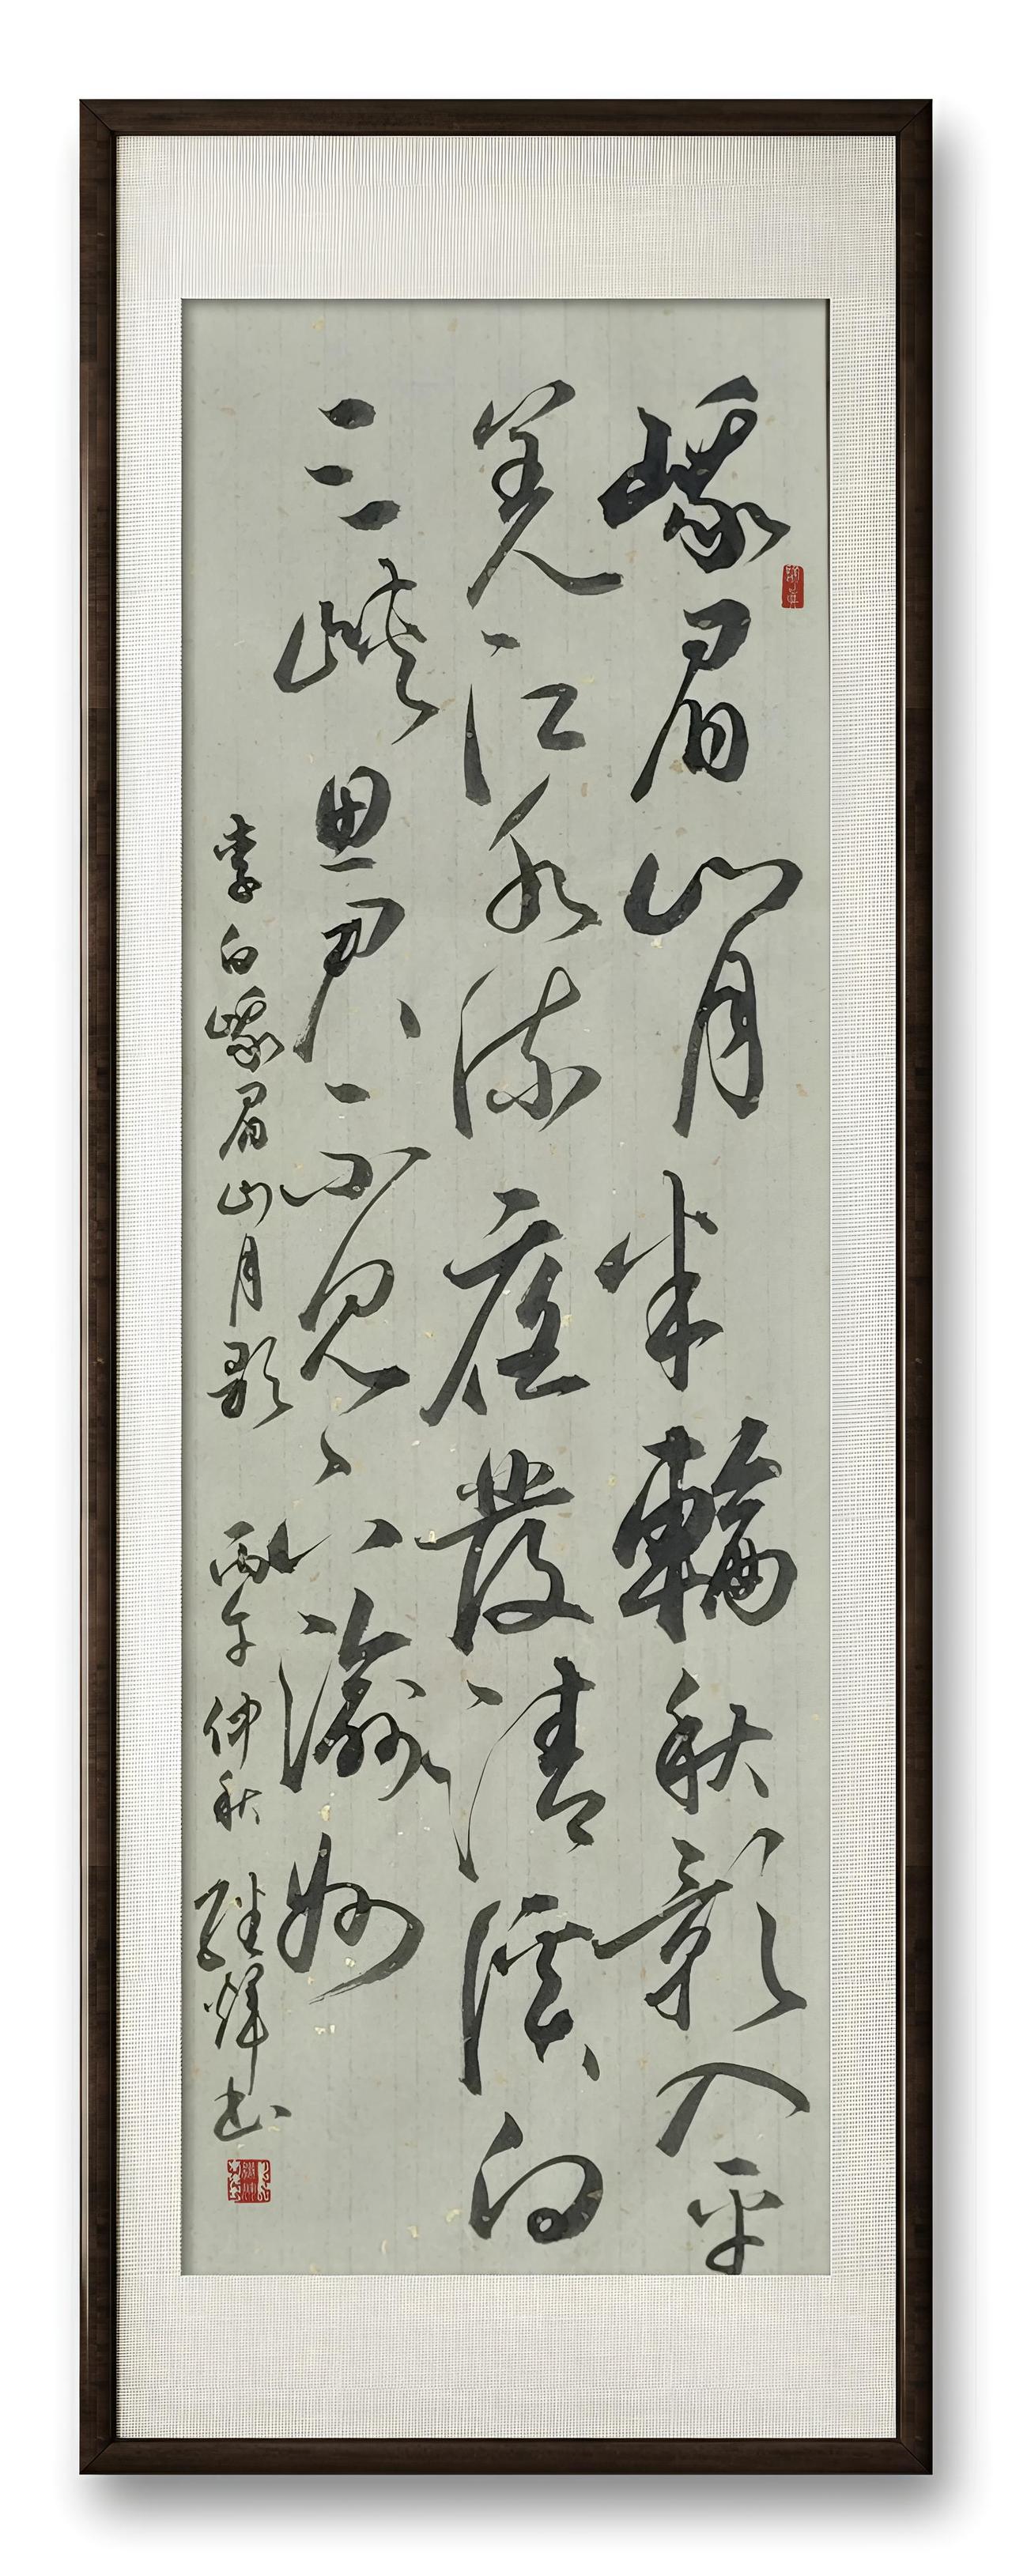 峨眉山月半輪秋影入平
羌江水流夜發清溪向
三峽思君不見下渝州
李白峨眉山月歌 丙午仲秋 書